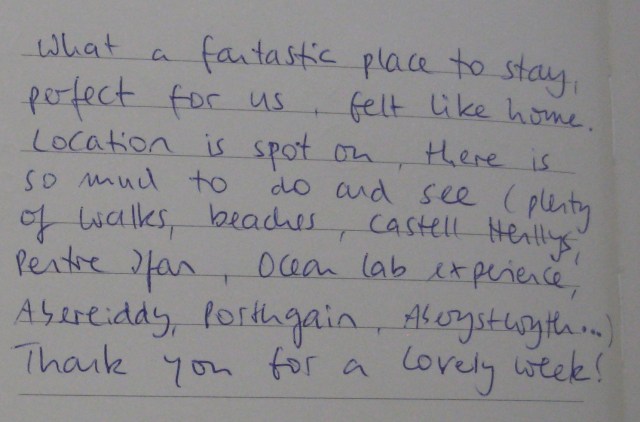 What a fantastic place to stay,
perfect for us, felt like home.
Location is spot on, there is
so much to do and see (plenty
of walks, beaches, Castell Henllys,
Pentre Ifan, Ocean lab experience,
Abereiddy, Porthgain, Aberystwyth...)
Thank you for a lovely week!